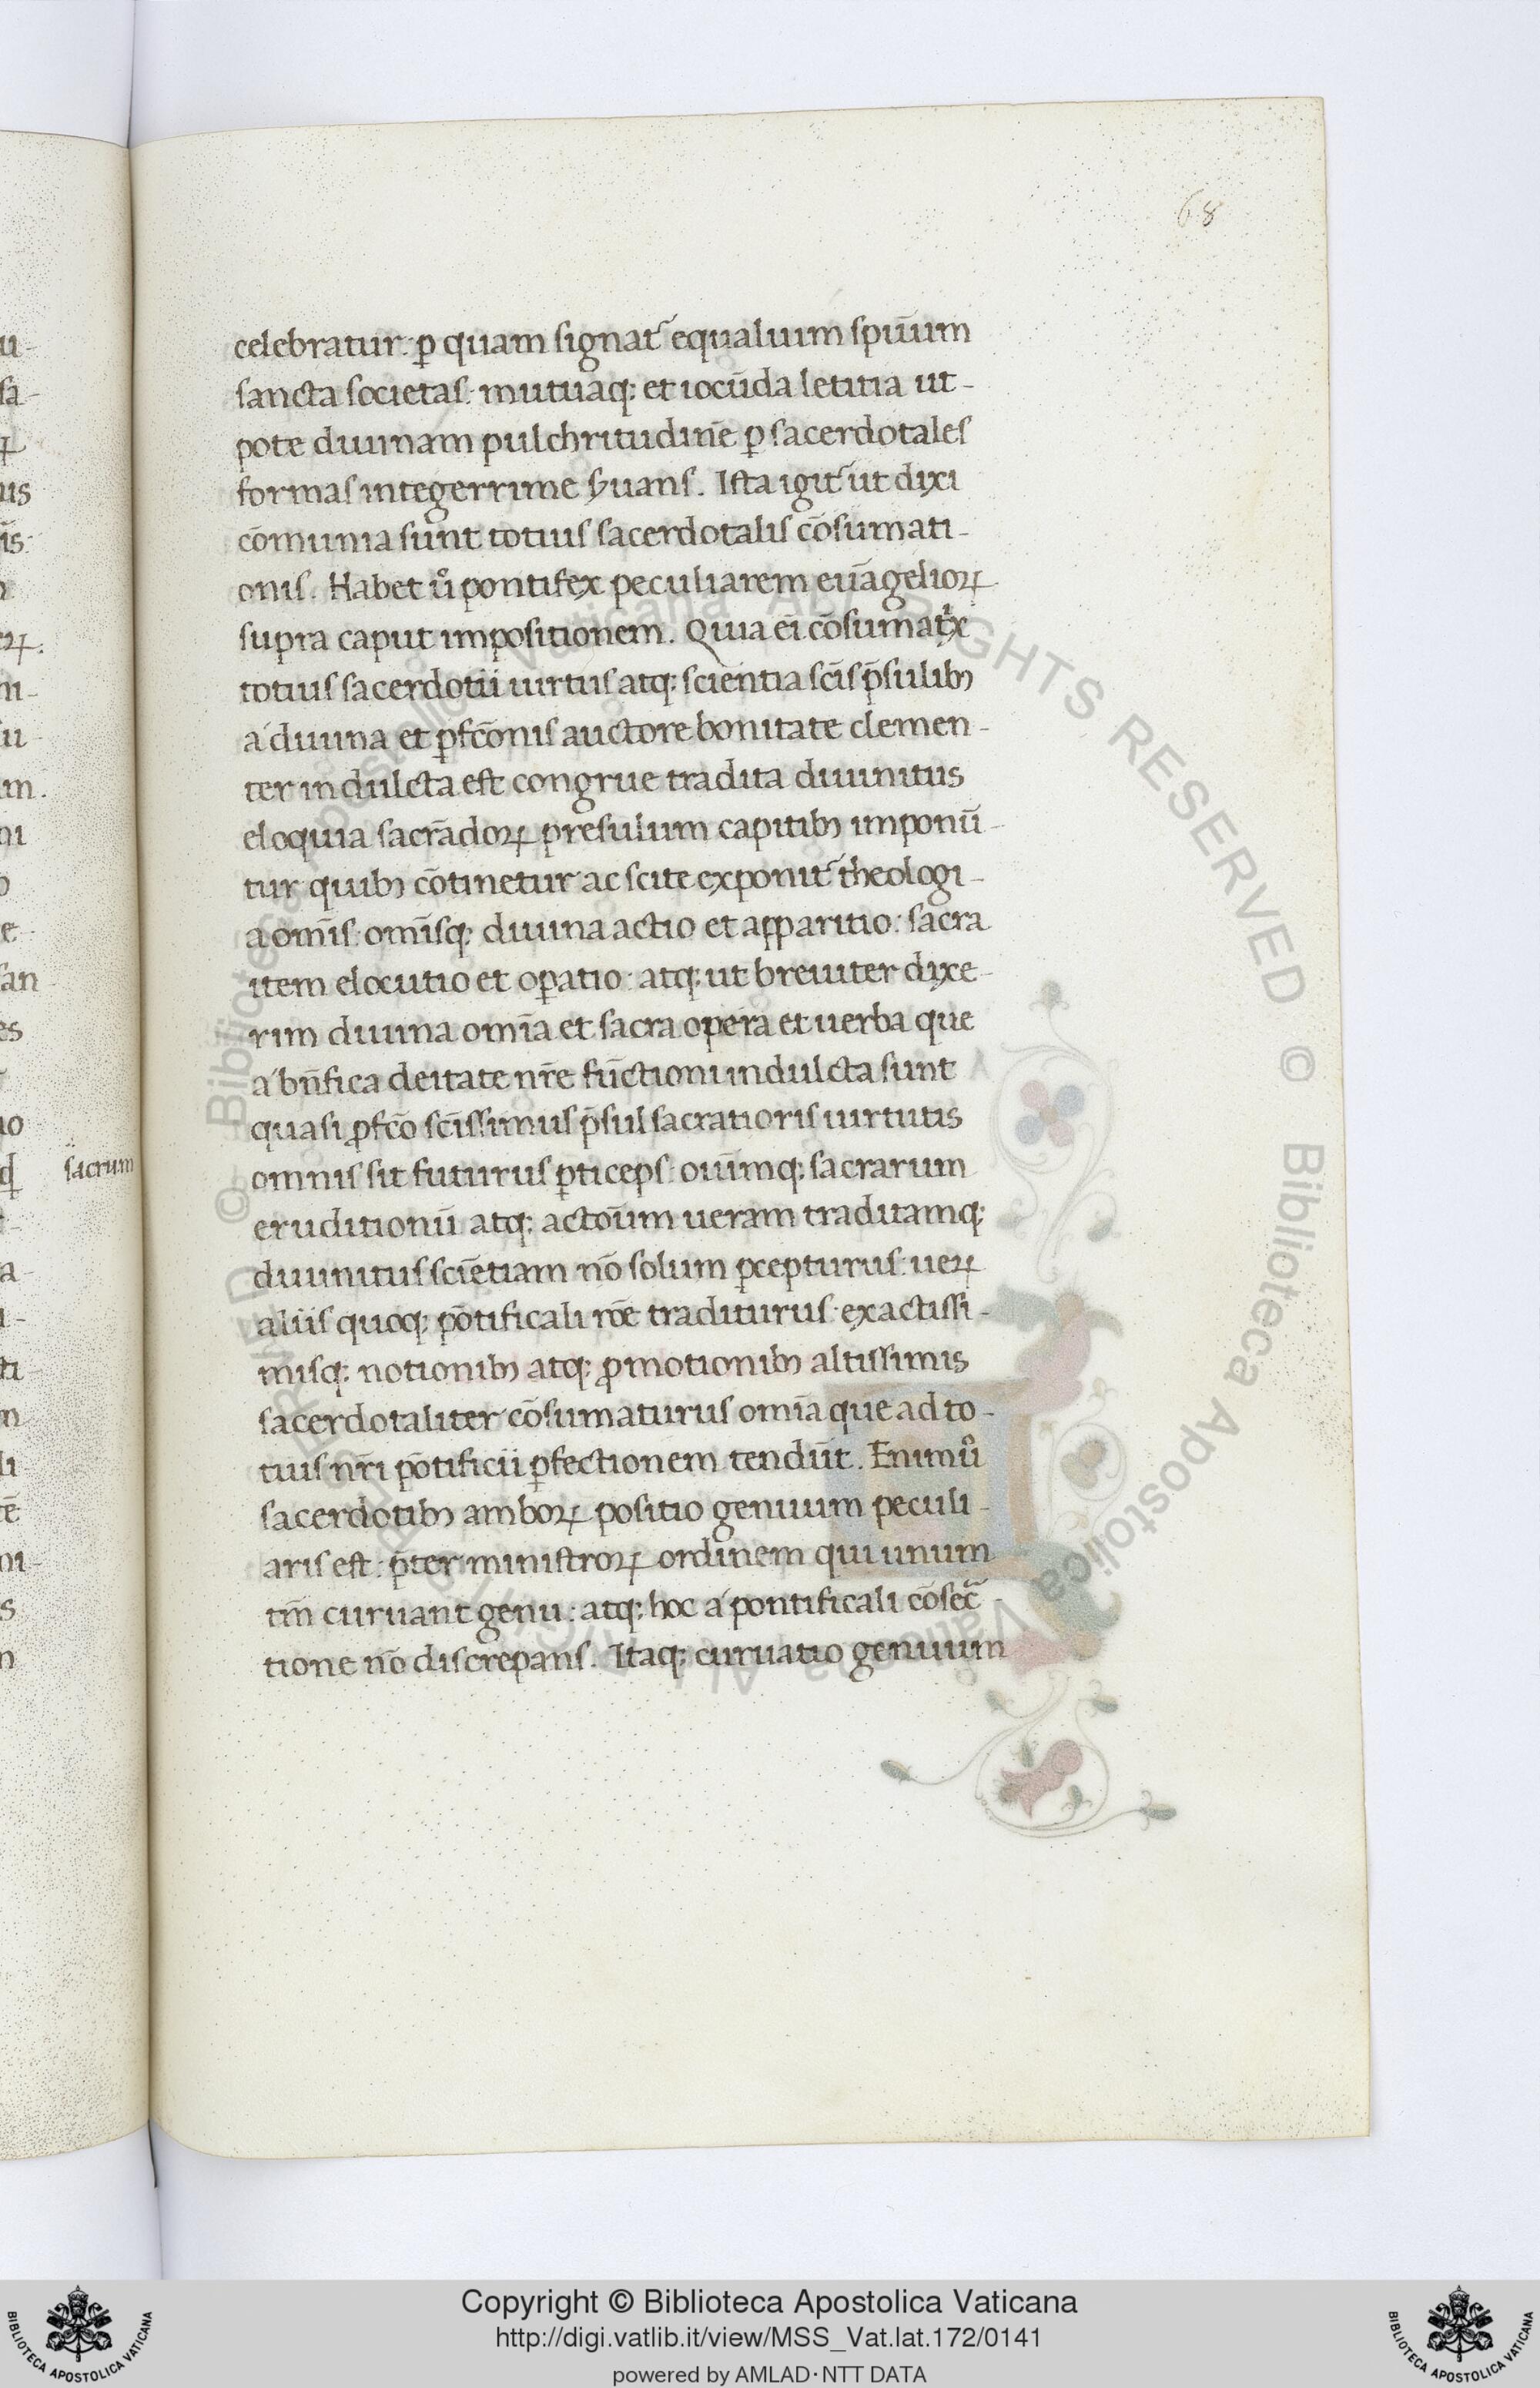 68
celebratur: ꝑ quam signat᷑ equaluum spūum
sancta societas: mutuaq; et iocūda letitia ut-
pote diuinam pulchritudinē ꝑ sacerdotales
formas integerrime ẜuans. Ista igit᷑ ut dixi
cōmunia sunt totius sacerdotalis cōsumati-
onis. Habet ů pontifex peculiarem euāgelioꝝ
supra caput impositionem. Quia ei cōsumatͥx
totius sacerdotii uirtus atq; scientia scīs p̄sulibꝫ
a diuina et ꝑfcōnis auctore bonitate clemen-
ter indulcta est congrue tradita diuinitus
eloquia sacrādoꝝ presulum capitibꝫ imponū-
tur quibꝫ cōtinetur ac scite exponit᷑ theologi-
a omīs: omīsq; diuina actio et apparitio: sacra
item elocutio et oꝑatio: atq; ut breuiter dixe-
rim diuina omīa et sacra opera et uerba que
a bn̄fica deitate nr̄e fūctioni indulcta sunt
quasi ꝓfcō scīssimus p̄sul sacratioris uirtutis
omnis sit futurus ꝑticeps: ouīmq; sacrarum
eruditionū atq; actoūm ueram traditamq;
diuinitus sciētiam nō solum ꝑcepturus: ueꝝ
aliis quoq; pōtificali rōe traditurus: exactissi-
misq; notionibꝫ atq; ꝓmotionibꝫ altissimis
sacerdotaliter cōsumaturus omīa que ad to-
tius nr̄i pōtificii ꝑfectionem tendūt. Enimů
sacerdotibꝫ amboꝝ positio genuum peculi-
aris est: p̄ter ministroꝝ ordinem qui unum
tm̄ curuant genu: atq; hoc a pontificali cōsec̄-
tione nō discrepans. Itaq; curuatio genuum
sacrum
Copyright © Biblioteca Apostolica Vaticana
http://digi.vatlib.it/view/MSS_Vat.lat.172/0141
powered by AMLAD·NTT DATA